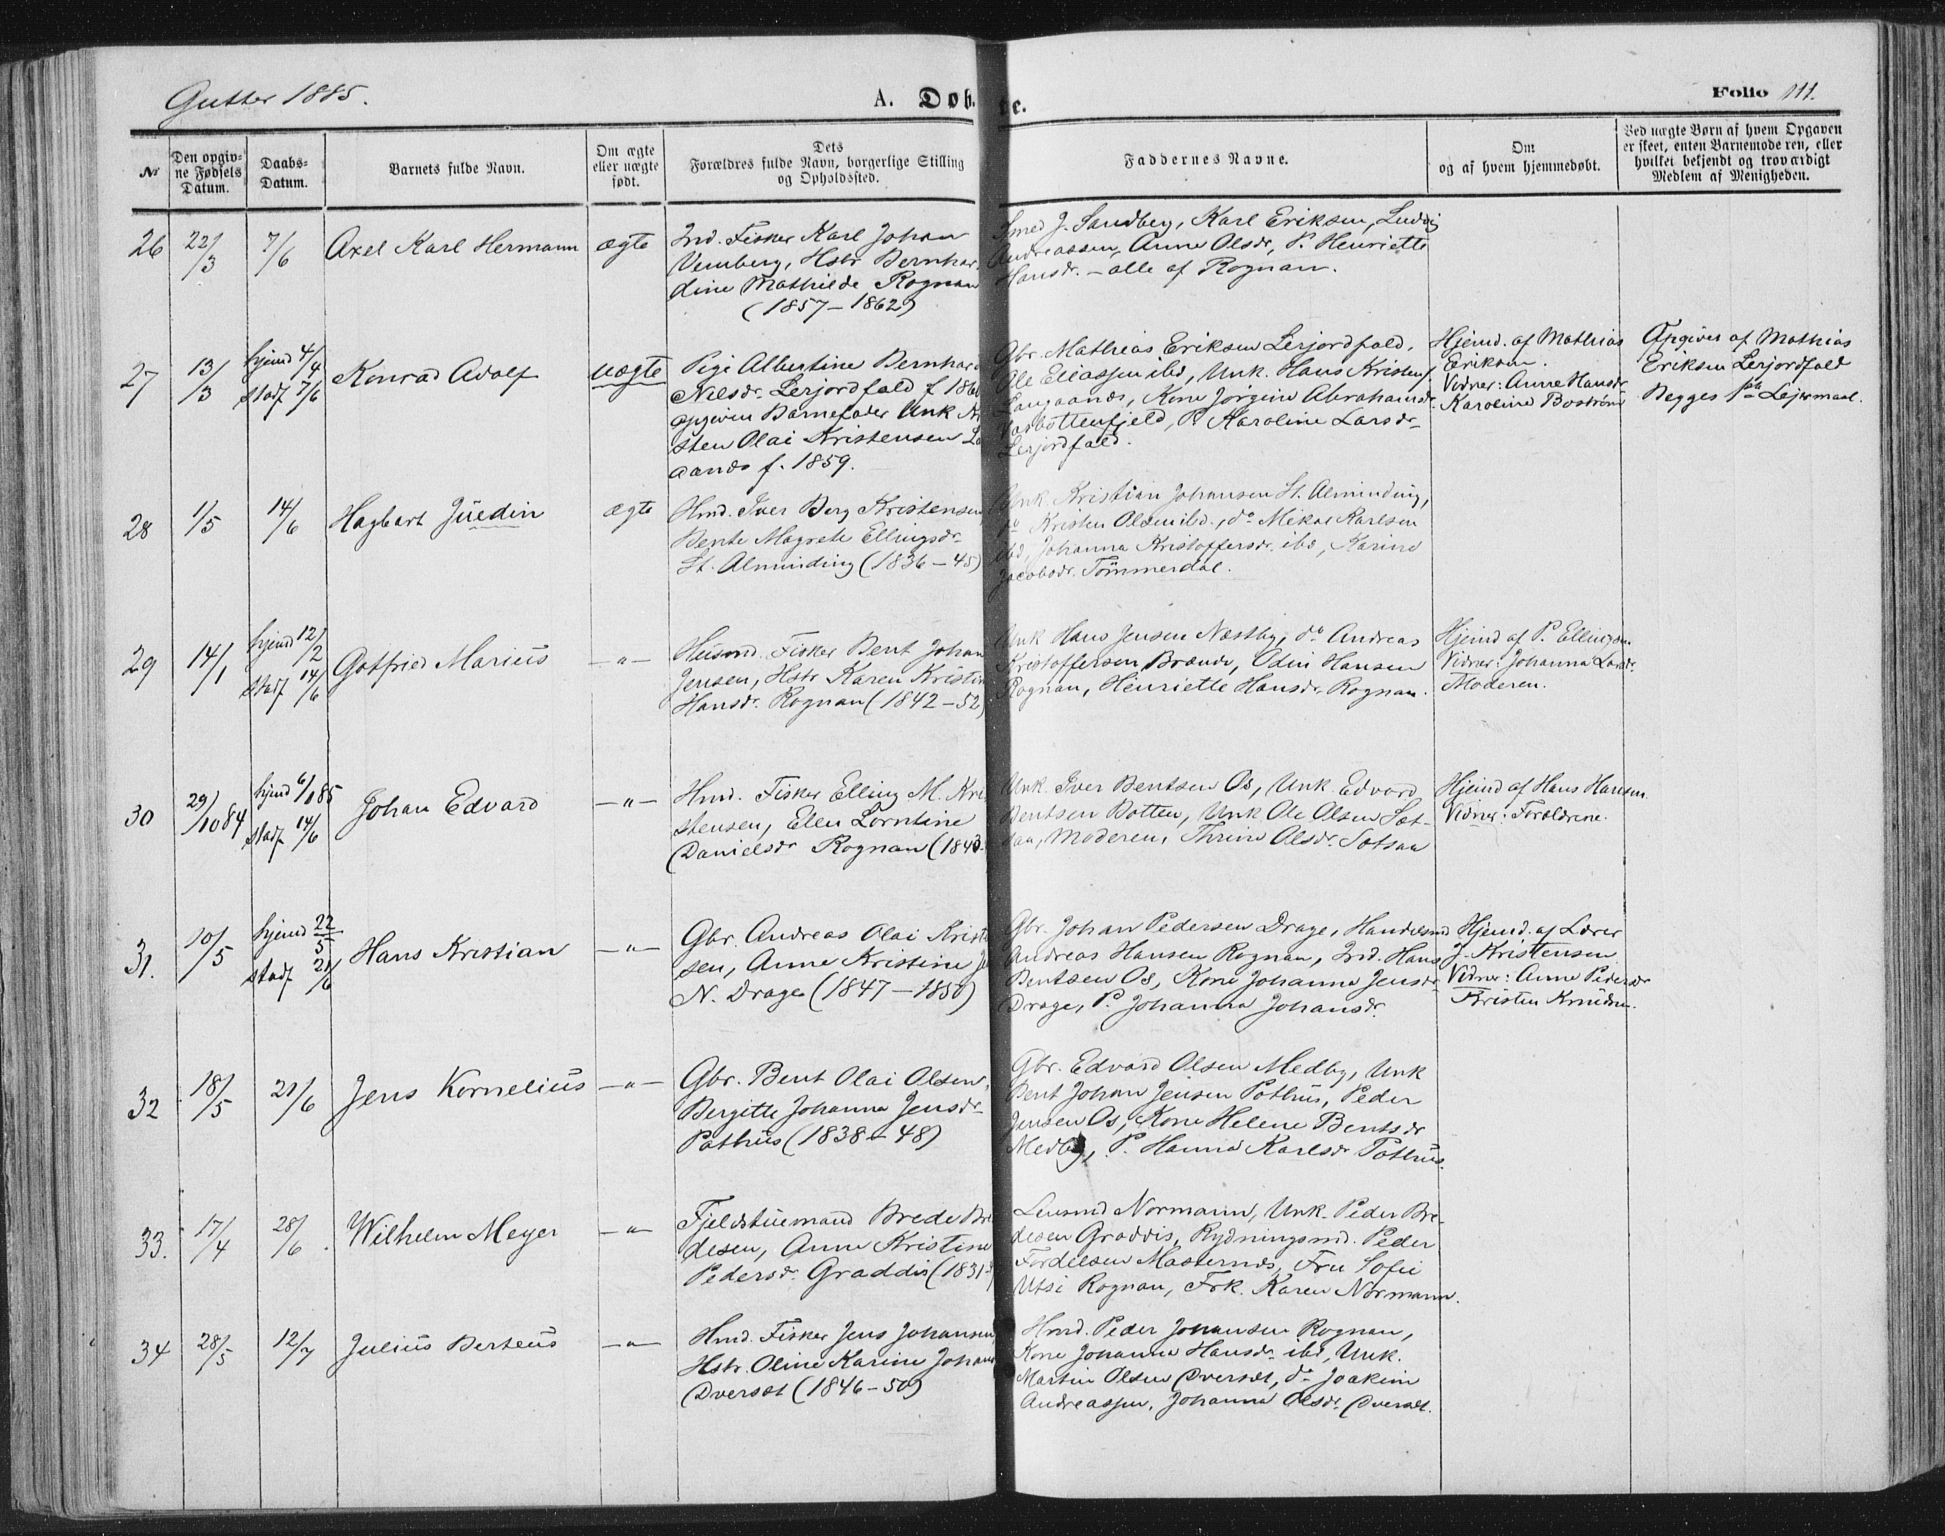 Gutter 1885.
A. Døbte.
Folio 111.
Nr
Den opgivne Fødsels Datum.
Daabs-Datum.
Barnets fulde Navn.
Om ægte eller uægte født.
Dets Forældres fulde Navn, borgerlige Stilling og Opholdssted.
Faddernes Navne.
Om og af hvem hjemmedøbt.
Ved uægte Børn af hvem Opgaven er skeet, enten Barnemoderen, eller hvilket bekjendt og troværdigt Medlem af Menigheden.
26 22/3 7/6 Axel Karl Hermann ægte
Ind. Fisker Karl Johan
Vemberg, Hstr Bernhar-
dine Mathilde Rognan
(1857-1862)
Smed J. Sandberg, Karl Eriksen, Ludvig
Andreassen, Anne Olsdr, P. Henriette
Hansdr. - alle af Rognan.
27 13/3 hjemd 4/4 stadf 7/6 Konrad Adolf uægte
Pige Albertine Bernhard
Nielsdr. Lerjordfald f 186
opgiven Barnefader Unk
sten Olai Kristensen
aands f. 1859.
Gbr. Mathias Eriksen Lerjordfald,
Ole Eliassen ibd, Unk. Hans Kristens.
Langaands, Kone Jørgine Abrahamsdr.
Vasbottenfjeld, P. Karoline Larsdr
Lerjordfald.
Hjemd. af Mathias
Eriksen.
Vidner: Anne Hansdr
Karoline Boström
Opgiver af Mathias
Eriksen Lerjordfald
Begges 1ste Lejermaal.
28 1/5 14/6 Hagbart Juedin ægte
Hmd. Iver Berg Kristensen
Bente Magrete Ellingsdr
St. Alminding (1836-45)
Unk. Kristian Johansen St. Alminding,
do Kristen Olsen ibd., do Mikal Karlsen
ibd, Johanna Kristoffersdr. ibd, Karine
Jacobsdr. Tömmerdal.
29 14/1 hjemd 12/2 stadf 14/6 Gotfried Marius -"-
Husmd. Fisker Bent Johan
Jensen, Hstr Karen Kristin
Hansdr. Rognan (1842-52)
Unk Hans Jensen Næstby, do Andreas
Kristoffersen Brænde, Odin Hansen
Rognan, Henriette Hansdr. Rognan.
Hjemd af P. Ellingsen
Vidner: Johanna Larsdr.
Moderen.
30 29/10 84 hjemd 6/1 85 stadf 14/6 Johan Edvard -"-
Hmd. Fisker Elling M. Kri
stensen, Ellen Lorntine
Danielsdr Rognan (1843-
Unk. Iver Bentsen Os, Unk. Edvard
Bentsen Botten, Unk Ole Olsen Sæt-
saa, Moderen, Thrine Olsdr. Sætsaa
Hjemd af Hans Hansen
Vidner: Forældrene.
31. 10/5 hjemd 22/5 stadf 21/6 Hans Kristian -"-
Gbr. Andreas Olai Krist
sen, Anne Kristine
N. Drage (1847-1850)
Gbr. Johan Pedersen Drage, Handelsmd
Andreas Hansen Rognan, Ind. Hans
Bentsen Os, Kone Johanna Jensdr
Drage, P. Johanna Johansdr.
Hjemd. af Lærer
J. Kristensen
Vidner: Anne Pedersdr
Kristen Knudsen.
32 18/5 21/6 Jens Kornelius -"-
Gbr. Bent Olai Olsen,
Bergitte Johanna Jensdr
Pothus (1838-48)
Gbr. Edvard Olsen Medby, Unk
Bent Johan Jensen Pothus, Peder
Jensen Os, Kone Helene Bentsdr
Medby, P. Hanna Karlsdr Pothus.
33. 17/4 28/6 Wilhelm Meyer -"-
Fjeldstuemand Brede Bre
desen, Anne Kristine
Pedersdr. Graddis (1831-
Lensmd Normann, Unk. Peder Bre-
desen Graddis, Rydningsmd. Peder
Fordelsen Masternes, Fru Sofie
Utsi Rognan, Frk. Karen Normann.
34 28/5 12/7 Julius Berteus -"-
Hmd. Fisker Jens Johansen
Hstr. Oline Karine Johans
Oversæt (1846-50)
Hmd. Peder Johansen Rognan,
Kone Johanna Hansdr ibd, Unk.
Martin Olsen Oversæt, do Joakim
Andreassen, Johanna Olsdr. Oversæt.